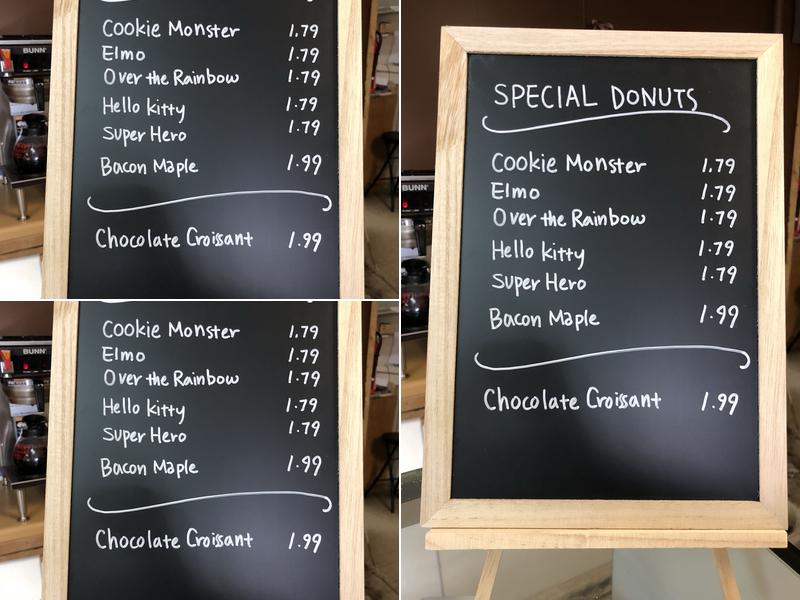 BUNN
Cookie Monster 1.79
Elmo 1.79
Over the Rainbow 1.79
Hello kitty 1.79
Super Hero 1.79
Bacon Maple 1.99
Chocolate Croissant 1.99
BUNN
Cookie Monster 1.79
Elmo 1.79
Over the Rainbow 1.79
Hello kitty 1.79
Super Hero 1.79
Bacon Maple 1.99
Chocolate Croissant 1.99
SPECIAL DONUTS
BUNN
Cookie Monster 1.79
Elmo 1.79
Over the Rainbow 1.79
Hello kitty 1.79
Super Hero 1.79
Bacon Maple 1.99
Chocolate Croissant 1.99